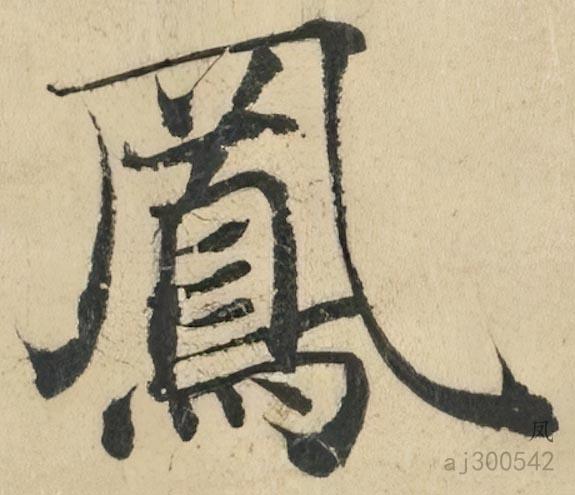 鳳
凤
aj300542